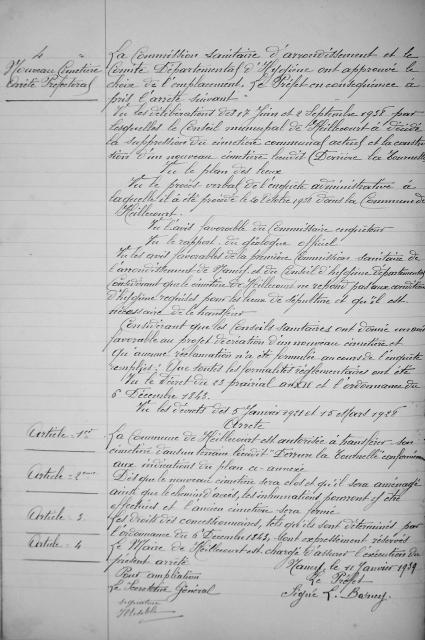 4
Nouveau Cimetière
Arrêté Préfectoral
La Commission sanitaire d'arrondissement et le
Comité Départemental d'Hygiène ont approuvé le
choix de l'emplacement. Le Préfet en conséquence a
pris l'arrêté suivant
Vu les délibérations des 17 Juin et 2 Septembre 1938 par
lesquelles le Conseil municipal de Heillecourt a décidé
la suppression du cimetière communal actuel et la construc
tion d'un nouveau cimetière lieudit (Derrière la Tournelle)
Vu le plan des lieux
Vu le procès verbal de l'enquête administrative à
laquelle il a été procédé le 4 Octobre 1938 dans la Commune de
Heillecourt.
Vu l'avis favorable du Commissaire enquêteur
Vu le rapport du géologue officiel
Vu les avis favorables de la première Commission sanitaire de
l'arrondissement de Nancy et du Conseil d'hygiène départemental
Considérant que le cimetière de Heillecourt ne répond pas aux conditions
d'hygiène requises pour les lieux de sépulture et qu'il est
nécessaire de le transférer
Considérant que les Conseils sanitaires ont donné un avis
favorable au projet de création d'un nouveau cimetière et
qu'aucune réclamation n'a été formulée au cours de l'enquête
Que toutes les formalités réglementaires ont été
remplies :
Vu le Décret du 23 prairial an XII et l'ordonnance du
6 Décembre 1843.
Vu les décrets des 5 Janvier 1921 et 15 Mars 1928
Arrête
Article - 1er
La Commune de Heillecourt est autorisée à transférer son
cimetière dans un terrain lieudit "Derrière la Tournelle" conformément
aux indications du plan ci-annexé
Article - 2ème
Dès que le nouveau cimetière sera clos et qu'il sera aménagé
ainsi que le chemin d'accès, les inhumations pourront y être
effectuées et l'ancien cimetière sera fermé
Article - 3.
Les droits des concessionnaires, tels qu'ils sont déterminés par
l'ordonnance du 6 Décembre 1843, sont expressément réservés
Article - 4
Le Maire de Heillecourt est chargé d'assurer l'exécution du
présent arrêté
Nancy, le 11 Janvier 1939
Pour ampliation
Le Préfet
Le Secrétaire Général
Signé L.
signature
illisible